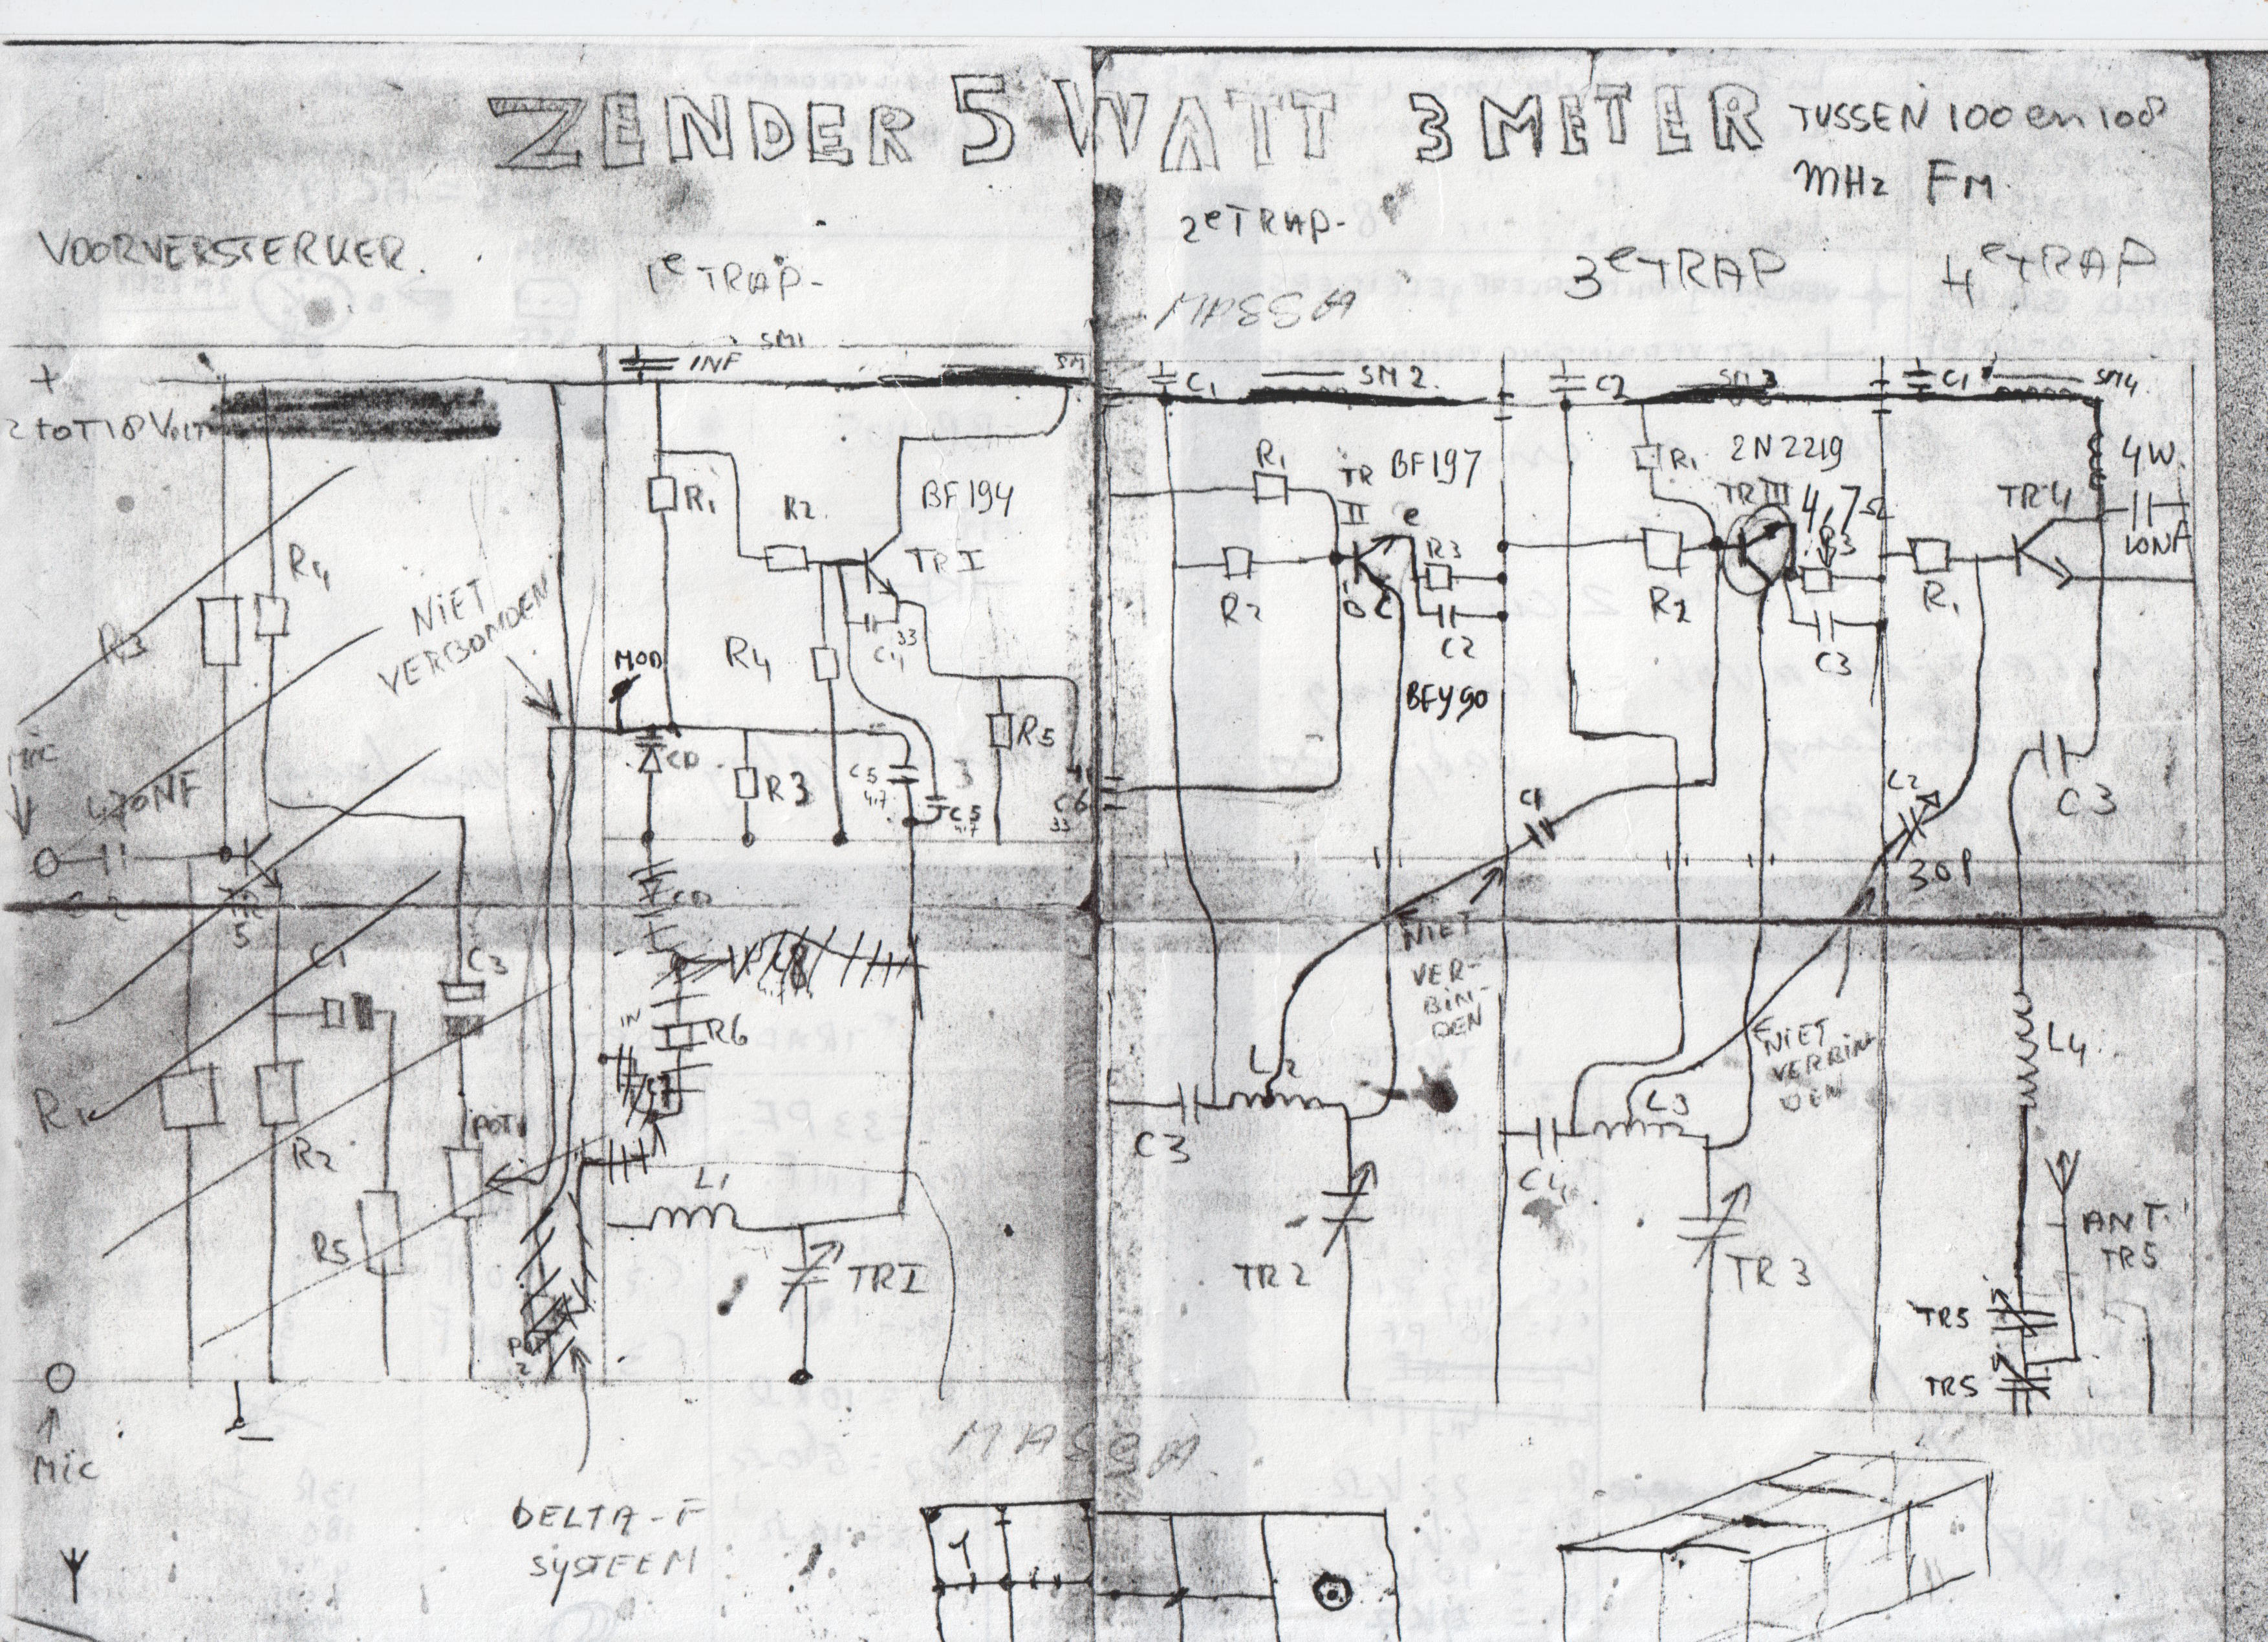 ZENDER 5 WATT 3 METER TUSSEN 100 en 108
MHz FM
VOORVERSTERKER.
1e TRAP-
2e TRAP-
3e TRAP
4e TRAP
MASSA
+
2 toT 18 VOLT
1NF
SM1
SM
C1
SM2.
C2
SM3
C1
SM4
R3
R4
NIET
VERBONDEN
R1
R2
BF194
TRI
MOD
R4
C4
33
CD
R3
C5
4,7
C5
4,7
R5
C6
33
R1
TR
II
BF197
e
R3
R2
b
C
C2
BFY90
R1
2N2219
TRIII
4,7Ω
R3
R2
C3
TR4
4W.
10NF
R1
C1
C2
30P
C3
Mic
470NF
C2
TR
5
C1
C3
R1
R2
R5
POT1
CD
IN
R6
L1
TRI
POT
2
NIET
VER-
BIN-
DEN
NIET
VERBIN
DEN
L2
C3
TR2
L3
C4
TR3
L4
ANT.
TR5
TR5
TR5
Mic
MASSA
DELTA-F
SYSTEEM